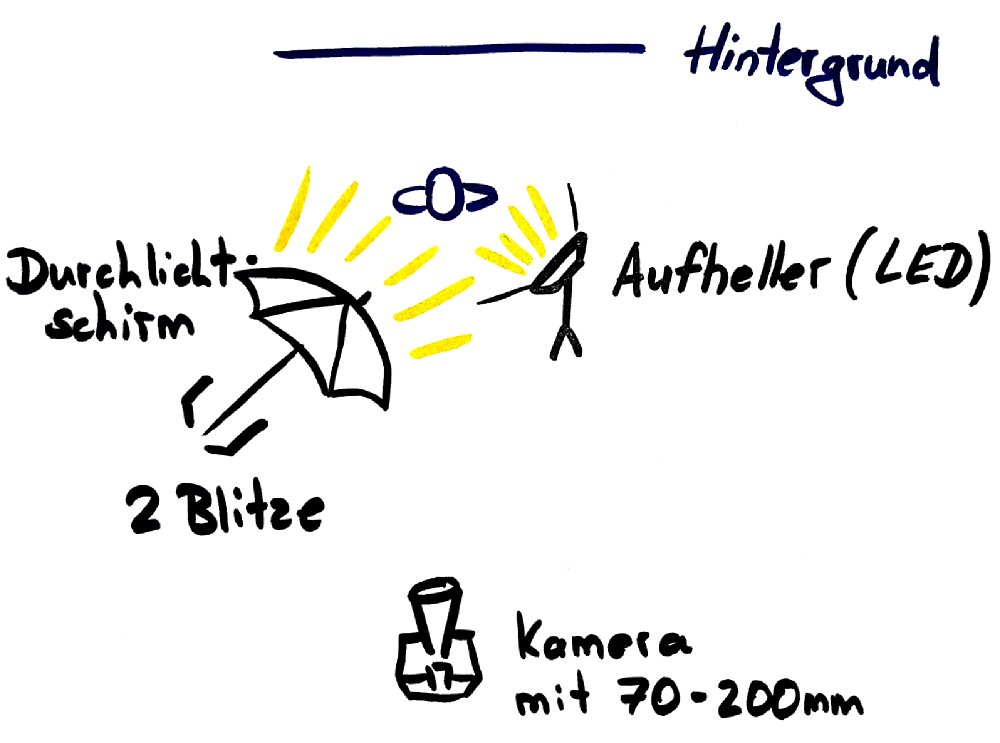 Hintergrund
Durchlicht-
schirm
Aufheller (LED)
2 Blitze
Kamera
mit 70-200mm